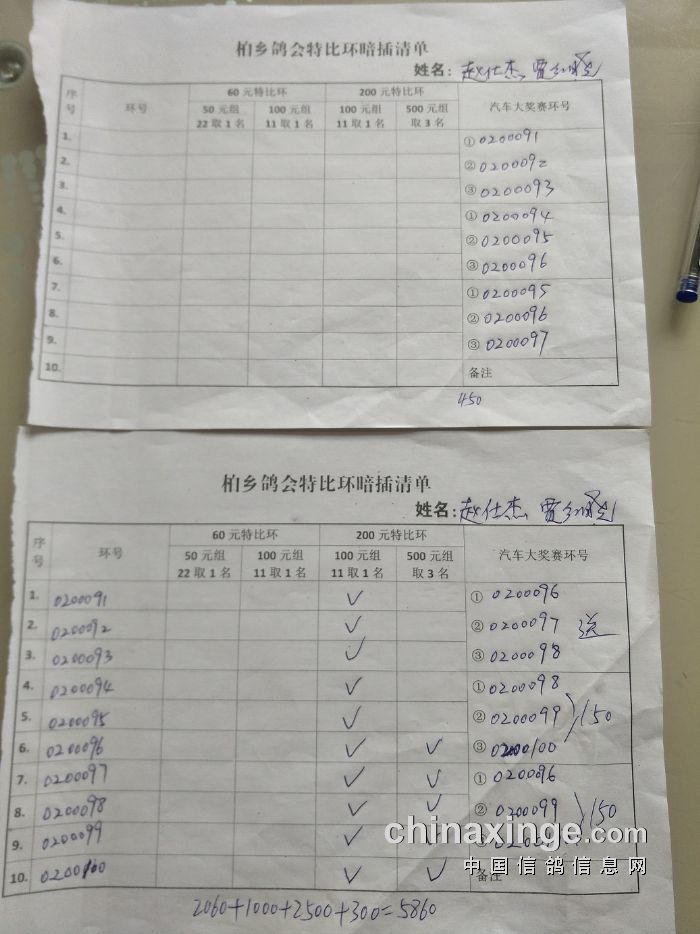 柏乡鸽会特比环暗插清单
姓名：赵仕杰、
序号 环号 60元特比环 200元特比环 汽车大奖赛环号
50元组 22取1名 100元组 11取1名 100元组 11取1名 500元组 取3名
1. ① 0200091
2. ② 0200092
3. ③ 0200093
4. ① 0200094
5. ② 0200095
6. ③ 0200096
7. ① 0200095
8. ② 0200096
9. ③ 0200097
10. 备注
450
柏乡鸽会特比环暗插清单
姓名：赵仕杰、
序号 环号 60元特比环 200元特比环 汽车大奖赛环号
50元组 22取1名 100元组 11取1名 100元组 11取1名 500元组 取3名
1. 0200091 ✓ ① 0200096
2. 0200092 ✓ ② 0200097 送
3. 0200093 ✓ ③ 0200098
4. 0200094 ✓ ① 0200098
5. 0200095 ✓ ② 0200099 150
6. 0200096 ✓ ✓ ③ 0200100
7. 0200097 ✓ ✓ ① 0200096
8. 0200098 ✓ ✓ ② 0200099 150
9. 0200099 ✓ ✓
10. 0200100 ✓ ✓ 备注
2060+1000+2500+300=5860
chinaxinge.com
中国信鸽信息网